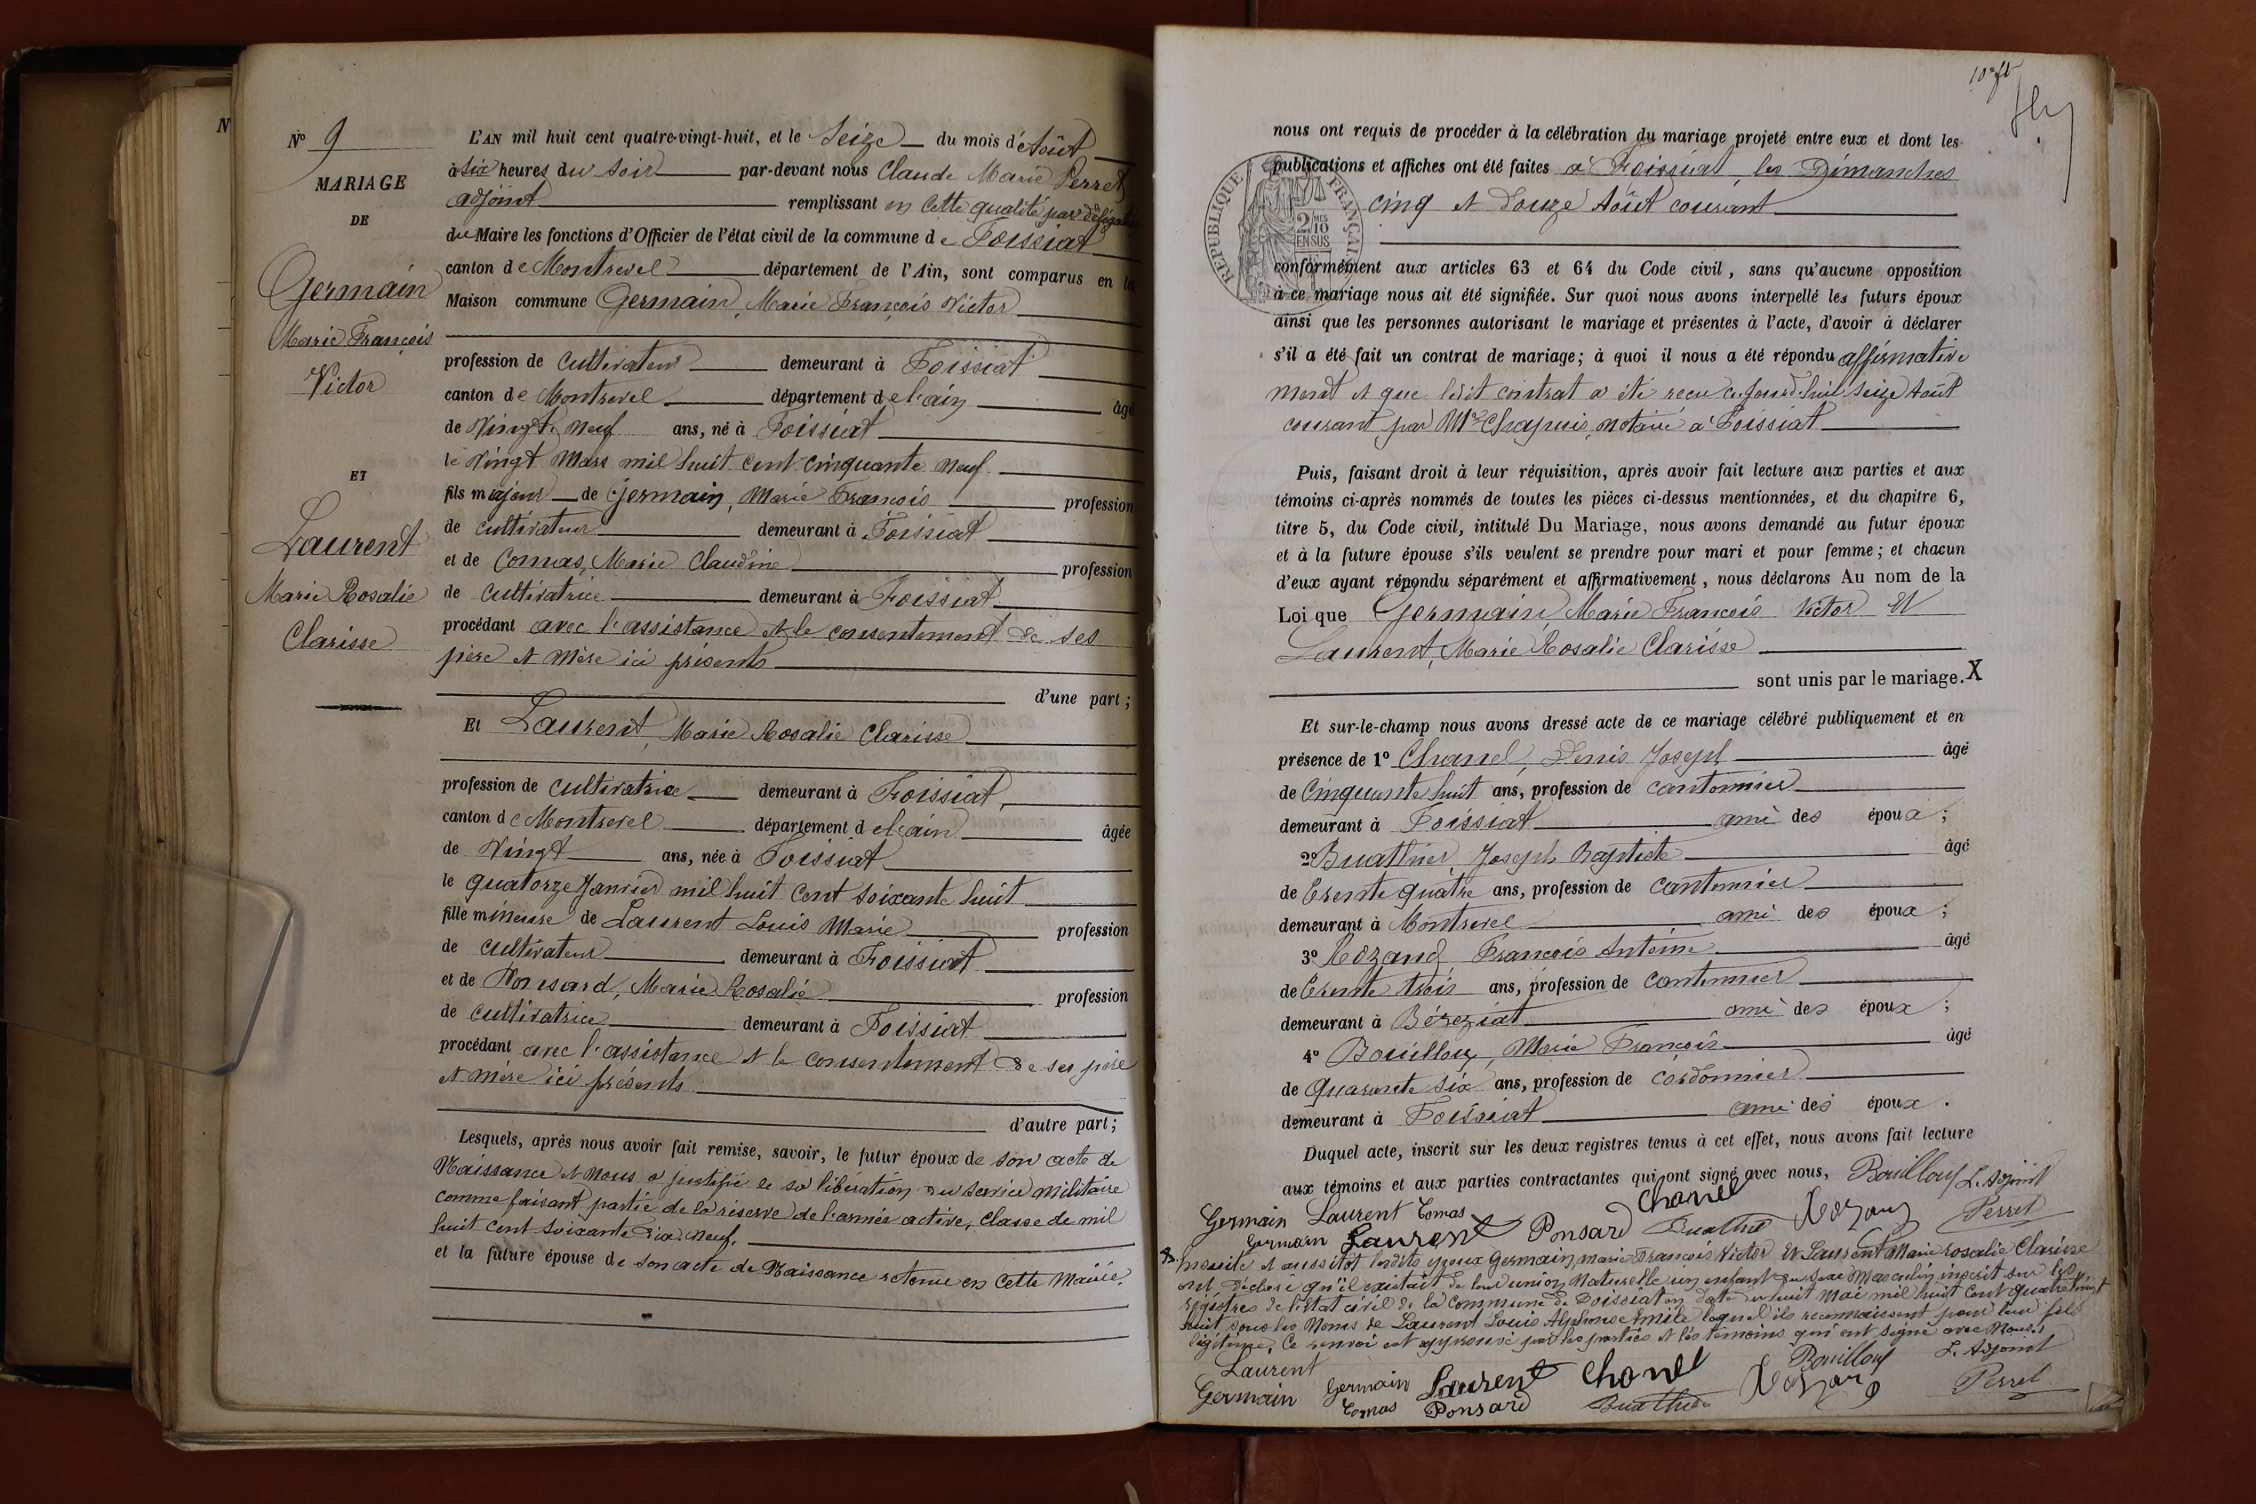 N
Nº 9
MARIAGE
DE
Germain
Marie François
Victor
ET
Laurent
Marie Rosalie
Clarisse
L'AN mil huit cent quatre-vingt-huit, et le Seize du mois d'Août
à six heures du soir par-devant nous Claude Marie Perret
adjoint remplissant en cette qualité par délégation
du Maire les fonctions d'Officier de l'état civil de la commune de Foissiat
canton de Montrevel département de l'Ain, sont comparus en la
Maison commune Germain, Marie François Victor
profession de cultivateur demeurant à Foissiat
canton de Montrevel département de l'ain âgé
de Vingt neuf ans, né à Foissiat
le Vingt Mars mil huit cent cinquante neuf
fils majeur de Germain, Marie François profession
de cultivateur demeurant à Foissiat
et de Comas, Marie Claudine profession
de cultivatrice demeurant à Foissiat
procédant avec l'assistance et le consentement de ses
père et mère ici présents
d'une part ;
Et Laurent, Marie Rosalie Clarisse
profession de cultivatrice demeurant à Foissiat,
canton de Montrevel département de l'ain âgée
de Vingt ans, née à Foissiat
le quatorze Janvier mil huit cent soixante huit
fille mineure de Laurent Louis Marie profession
de cultivateur demeurant à Foissiat
et de Ponsard, Marie Rosalie profession
de cultivatrice demeurant à Foissiat
procédant avec l'assistance et le consentement de ses père
et mère ici présents
d'autre part ;
Lesquels, après nous avoir fait remise, savoir, le futur époux de son acte de
Naissance et nous a justifié de sa libération du service militaire
comme faisant partie de la réserve de l'armée active, classe de mil
huit cent soixante dix-neuf.
et la future épouse de son acte de Naissance retenue en cette Mairie.
nous ont requis de procéder à la célébration du mariage projeté entre eux et dont les
publications et affiches ont été faites à Foissiat, les Dimanches
cinq et douze Août courant
RÉPUBLIQUE FRANÇAISE
2/10 MES
EN SUS
conformément aux articles 63 et 64 du Code civil, sans qu'aucune opposition
à ce mariage nous ait été signifiée. Sur quoi nous avons interpellé les futurs époux
ainsi que les personnes autorisant le mariage et présentes à l'acte, d'avoir à déclarer
s'il a été fait un contrat de mariage; à quoi il nous a été répondu affirmative
ment et que ledit contrat a été reçu ce jourd'hui seize Août
courant par Me Chapuis, notaire à Foissiat
Puis, faisant droit à leur réquisition, après avoir fait lecture aux parties et aux
témoins ci-après nommés de toutes les pièces ci-dessus mentionnées, et du chapitre 6,
titre 5, du Code civil, intitulé Du Mariage, nous avons demandé au futur époux
et à la future épouse s'ils veulent se prendre pour mari et pour femme ; et chacun
d'eux ayant répondu séparément et affirmativement, nous déclarons Au nom de la
Loi que Germain, Marie François Victor et
Laurent, Marie Rosalie Clarisse
sont unis par le mariage. X
Et sur-le-champ nous avons dressé acte de ce mariage célébré publiquement et en
présence de 1º Chanel, Denis Joseph âgé
de Cinquante huit ans, profession de cantonnier
demeurant à Foissiat ami des époux ;
2º Buathier Joseph Baptiste âgé
de trente quatre ans, profession de cantonnier
demeurant à Montrevel ami des époux ;
3º Rozand François Antoine âgé
de trente trois ans, profession de cantonnier
demeurant à Béréziat ami des époux ;
4º Bouilloux, Marie François âgé
de quarante six ans, profession de cordonnier
demeurant à Foissiat ami des époux.
Duquel acte, inscrit sur les deux registres tenus à cet effet, nous avons fait lecture
aux témoins et aux parties contractantes qui ont signé avec nous, Bouilloux L. Adjoint
Germain Laurent Comas Chanel
Germain Laurent Ponsard Buathier Rozand Perret
X Ensuite et aussitôt lesdits époux Germain, Marie François Victor et Laurent Marie Rosalie Clarisse
ont déclaré qu'il existait de leur union naturelle un enfant du sexe Masculin inscrit sur les
registres de l'état civil de la commune de Foissiat en date du huit Mai mil huit cent quatre vingt
huit sous les Noms de Laurent Louis Alphonse Emile lequel ils reconnaissent pour leur fils
légitime. Ce renvoi est approuvé par les parties et les témoins qui ont signé avec Nous.
Laurent Bouilloux L. Adjoint
Germain Germain Laurent Chanel Rozand Perret
Comas Ponsard Buathier